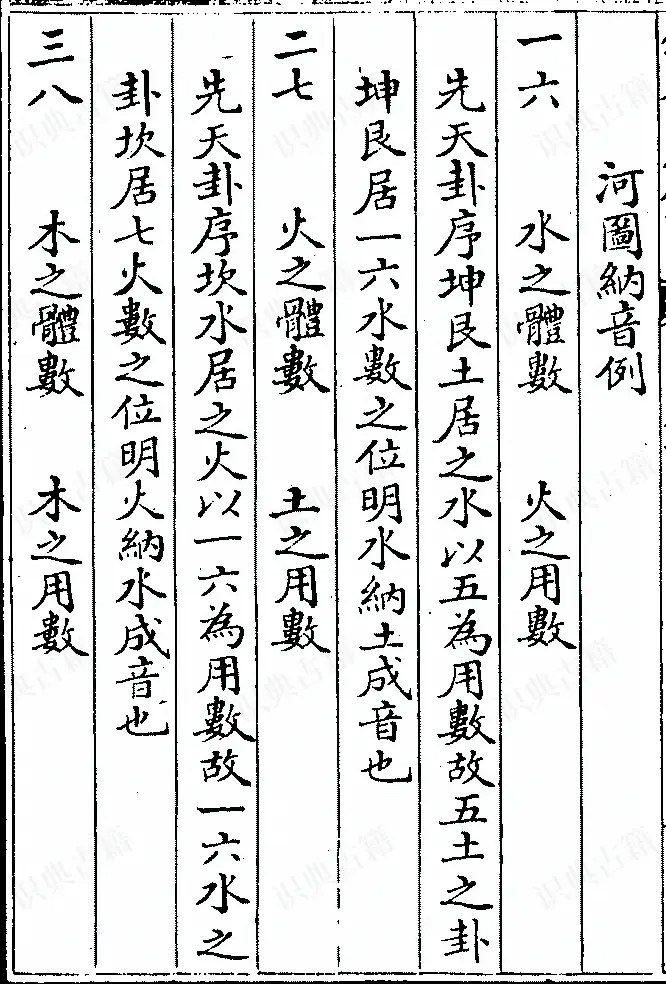 河圖納音例
一六　水之體數　火之用數
先天卦序坤艮土居之水以五為用數故五土之卦
坤艮居一六水數之位明水納土成音也
二七　火之體數　土之用數
先天卦序坎水居之火以一六為用數故一六水之
卦坎居七火數之位明火納水成音也
三八　木之體數　木之用數
识典古籍